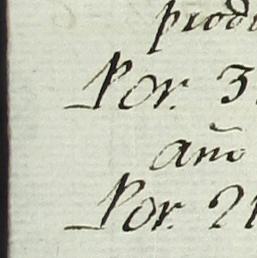 produ
Por. 3
año
Por. 21